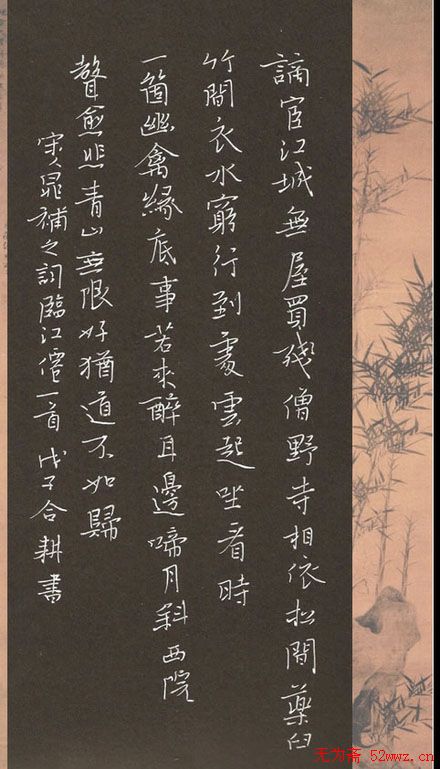 謫宦江城無屋買殘僧野寺相依松間藥臼
竹間衣水窮行到處雲起坐看時
一箇幽禽緣底事苦來醉耳邊啼月斜西院
聲愈悲青山無限好猶道不如歸
宋人晁補之詞臨江僊一首戊子合耕書
无为斋 52wwz.cn